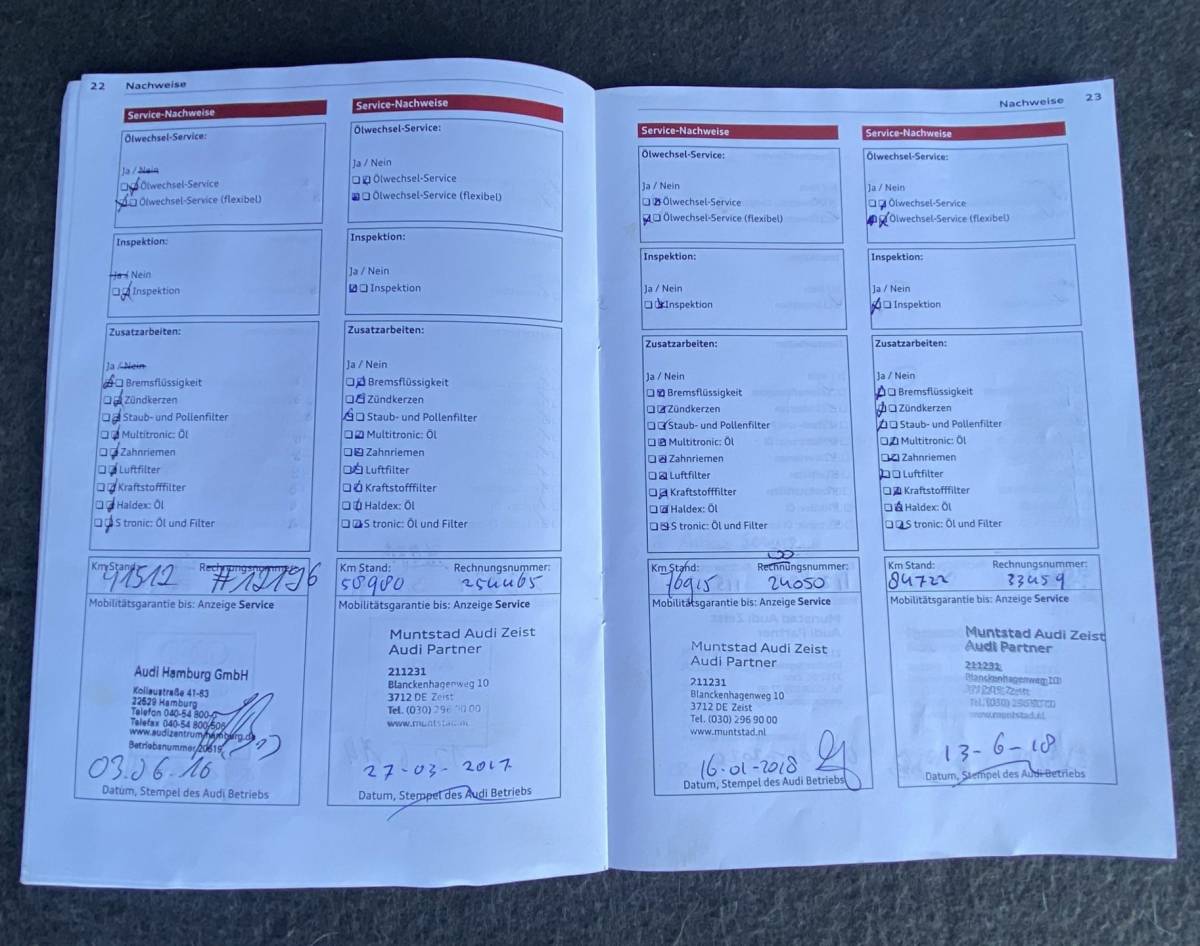 22 Nachweise
Service-Nachweise
Ölwechsel-Service:
Ja / Nein
Ölwechsel-Service
Ölwechsel-Service (flexibel)
Inspektion:
Ja / Nein
Inspektion
Zusatzarbeiten:
Ja / Nein
Bremsflüssigkeit
Zündkerzen
Staub- und Pollenfilter
Multitronic: Öl
Zahnriemen
Luftfilter
Kraftstofffilter
Haldex: Öl
S tronic: Öl und Filter
Km Stand: Rechnungsnummer:
41512 #12196
Mobilitätsgarantie bis: Anzeige Service
Audi Hamburg GmbH
Kollaustraße 41-63
22529 Hamburg
Telefon 040-54 800-
Telefax 040-54 800 506
www.audizentrumhamburg.de
Betriebsnummer 20619
03.06.16
Datum, Stempel des Audi Betriebs
Service-Nachweise
Ölwechsel-Service:
Ja / Nein
Ölwechsel-Service
Ölwechsel-Service (flexibel)
Inspektion:
Ja / Nein
Inspektion
Zusatzarbeiten:
Ja / Nein
Bremsflüssigkeit
Zündkerzen
Staub- und Pollenfilter
Multitronic: Öl
Zahnriemen
Luftfilter
Kraftstofffilter
Haldex: Öl
S tronic: Öl und Filter
Km Stand: Rechnungsnummer:
58980 254465
Mobilitätsgarantie bis: Anzeige Service
Muntstad Audi Zeist
Audi Partner
211231
Blanckenhagenweg 10
3712 DE Zeist
Tel. (030) 296 90 00
www.muntstad.nl
27-03-2017
Datum, Stempel des Audi Betriebs
Nachweise 23
Service-Nachweise
Ölwechsel-Service:
Ja / Nein
Ölwechsel-Service
Ölwechsel-Service (flexibel)
Inspektion:
Ja / Nein
Inspektion
Zusatzarbeiten:
Ja / Nein
Bremsflüssigkeit
Zündkerzen
Staub- und Pollenfilter
Multitronic: Öl
Zahnriemen
Luftfilter
Kraftstofffilter
Haldex: Öl
S tronic: Öl und Filter
Km Stand: Rechnungsnummer:
76915 24050
Mobilitätsgarantie bis: Anzeige Service
Muntstad Audi Zeist
Audi Partner
211231
Blanckenhagenweg 10
3712 DE Zeist
Tel. (030) 296 90 00
www.muntstad.nl
16-01-2018
Datum, Stempel des Audi Betriebs
Service-Nachweise
Ölwechsel-Service:
Ja / Nein
Ölwechsel-Service
Ölwechsel-Service (flexibel)
Inspektion:
Ja / Nein
Inspektion
Zusatzarbeiten:
Ja / Nein
Bremsflüssigkeit
Zündkerzen
Staub- und Pollenfilter
Multitronic: Öl
Zahnriemen
Luftfilter
Kraftstofffilter
Haldex: Öl
S tronic: Öl und Filter
Km Stand: Rechnungsnummer:
84722 33459
Mobilitätsgarantie bis: Anzeige Service
Muntstad Audi Zeist
Audi Partner
211231
Blanckenhagenweg 10
3712 DE Zeist
Tel. (030) 296 90 00
www.muntstad.nl
13-6-18
Datum, Stempel des Audi Betriebs